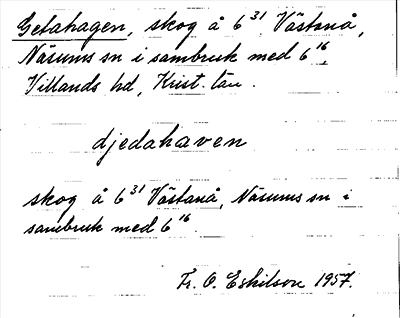 Getahagen, skog å 6³¹ Västanå,
Näsums sn i sambruk med 6¹⁶.
Villands hd, Krist. län.
djedahaven
skog å 6³¹ Västanå, Näsums sn i
sambruk med 6¹⁶.
Fr. O. Eskilson 1957.